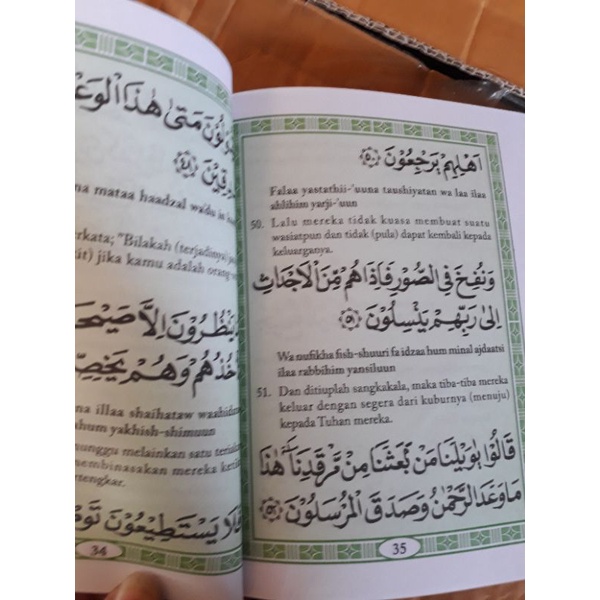 متى هذا الوعد
دقين ﴿٤٨﴾
na mataa haadzal wa'du in
erkata; "Bilakah (terjadinya)
jika kamu adalah orang-
ينظرون الا صيحة
خذهم وهم يخص
na illaa shaihataw waahida
hum yakhish-shimuun
nunggu melainkan satu teria
embinasakan mereka ketik
ertengkar.
فلا يستطيعون تو
34
اهلهم يرجعون ﴿٥٠﴾
Falaa yastathii-'uuna taushiyatan wa laa ilaa
ahlihim yarji-'uun
50. Lalu mereka tidak kuasa membuat suatu
wasiatpun dan tidak (pula) dapat kembali kepada
keluarganya.
ونفخ فى الصور فاذاهم من الاجداث
الى ربهم ينسلون ﴿٥١﴾
Wa nufikha fish-shuuri fa idzaa hum minal ajdaatsi
ilaa rabbihim yansiluun
51. Dan ditiuplah sangkakala, maka tiba-tiba mereka
keluar dengan segera dari kuburnya (menuju)
kepada Tuhan mereka.
قالوا يويلنا من بعثنا من مرقدنا هذا
ما وعد الرحمن وصدق المرسلون ﴿٥٢﴾
35